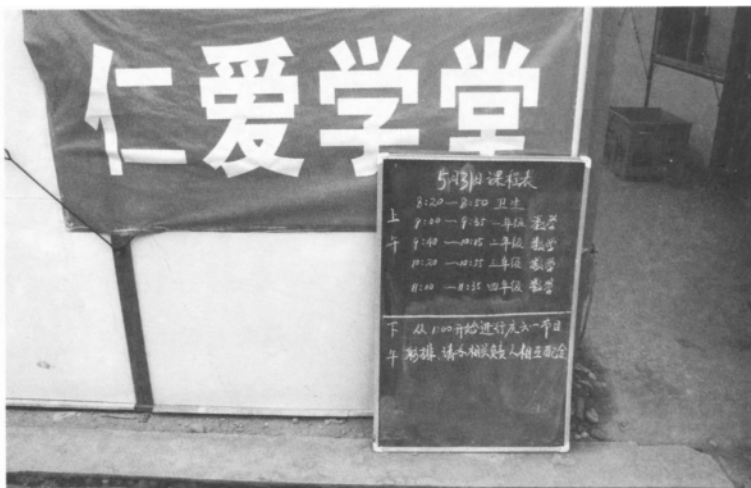 仁爱学堂
5月31日课程表
上午
8:20—8:50 卫生
9:00—9:35 一年级 数学
9:40—10:15 二年级 数学
10:20—10:55 三年级 数学
11:00—11:35 四年级 数学
下午
从1:00开始进行庆六一节日
彩排、请各相关负责人相互配合